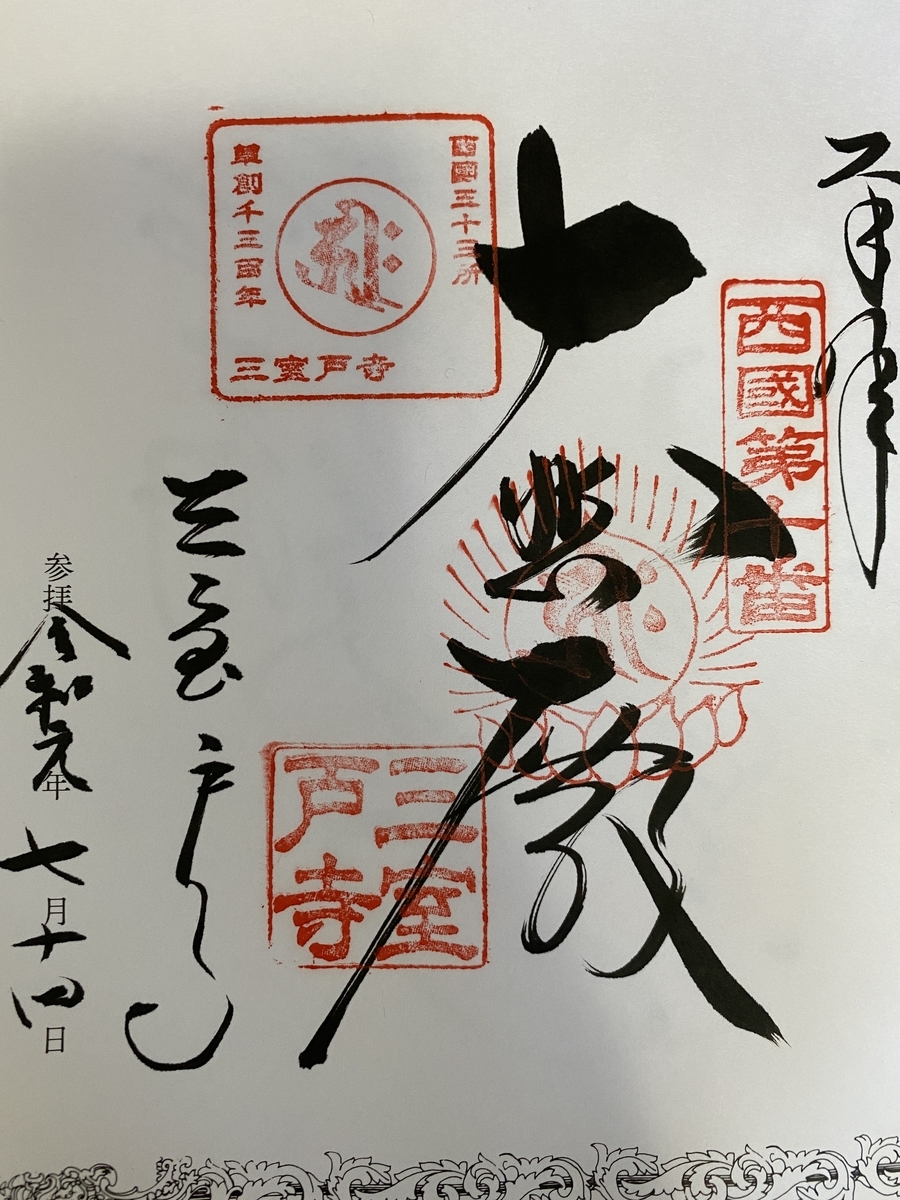 奉拝
西國第十番
大悲殿
西國三十三所
草創千三百年
三室戸寺
三室戸寺
三室戸寺
参拝 令和元年 七月十四日